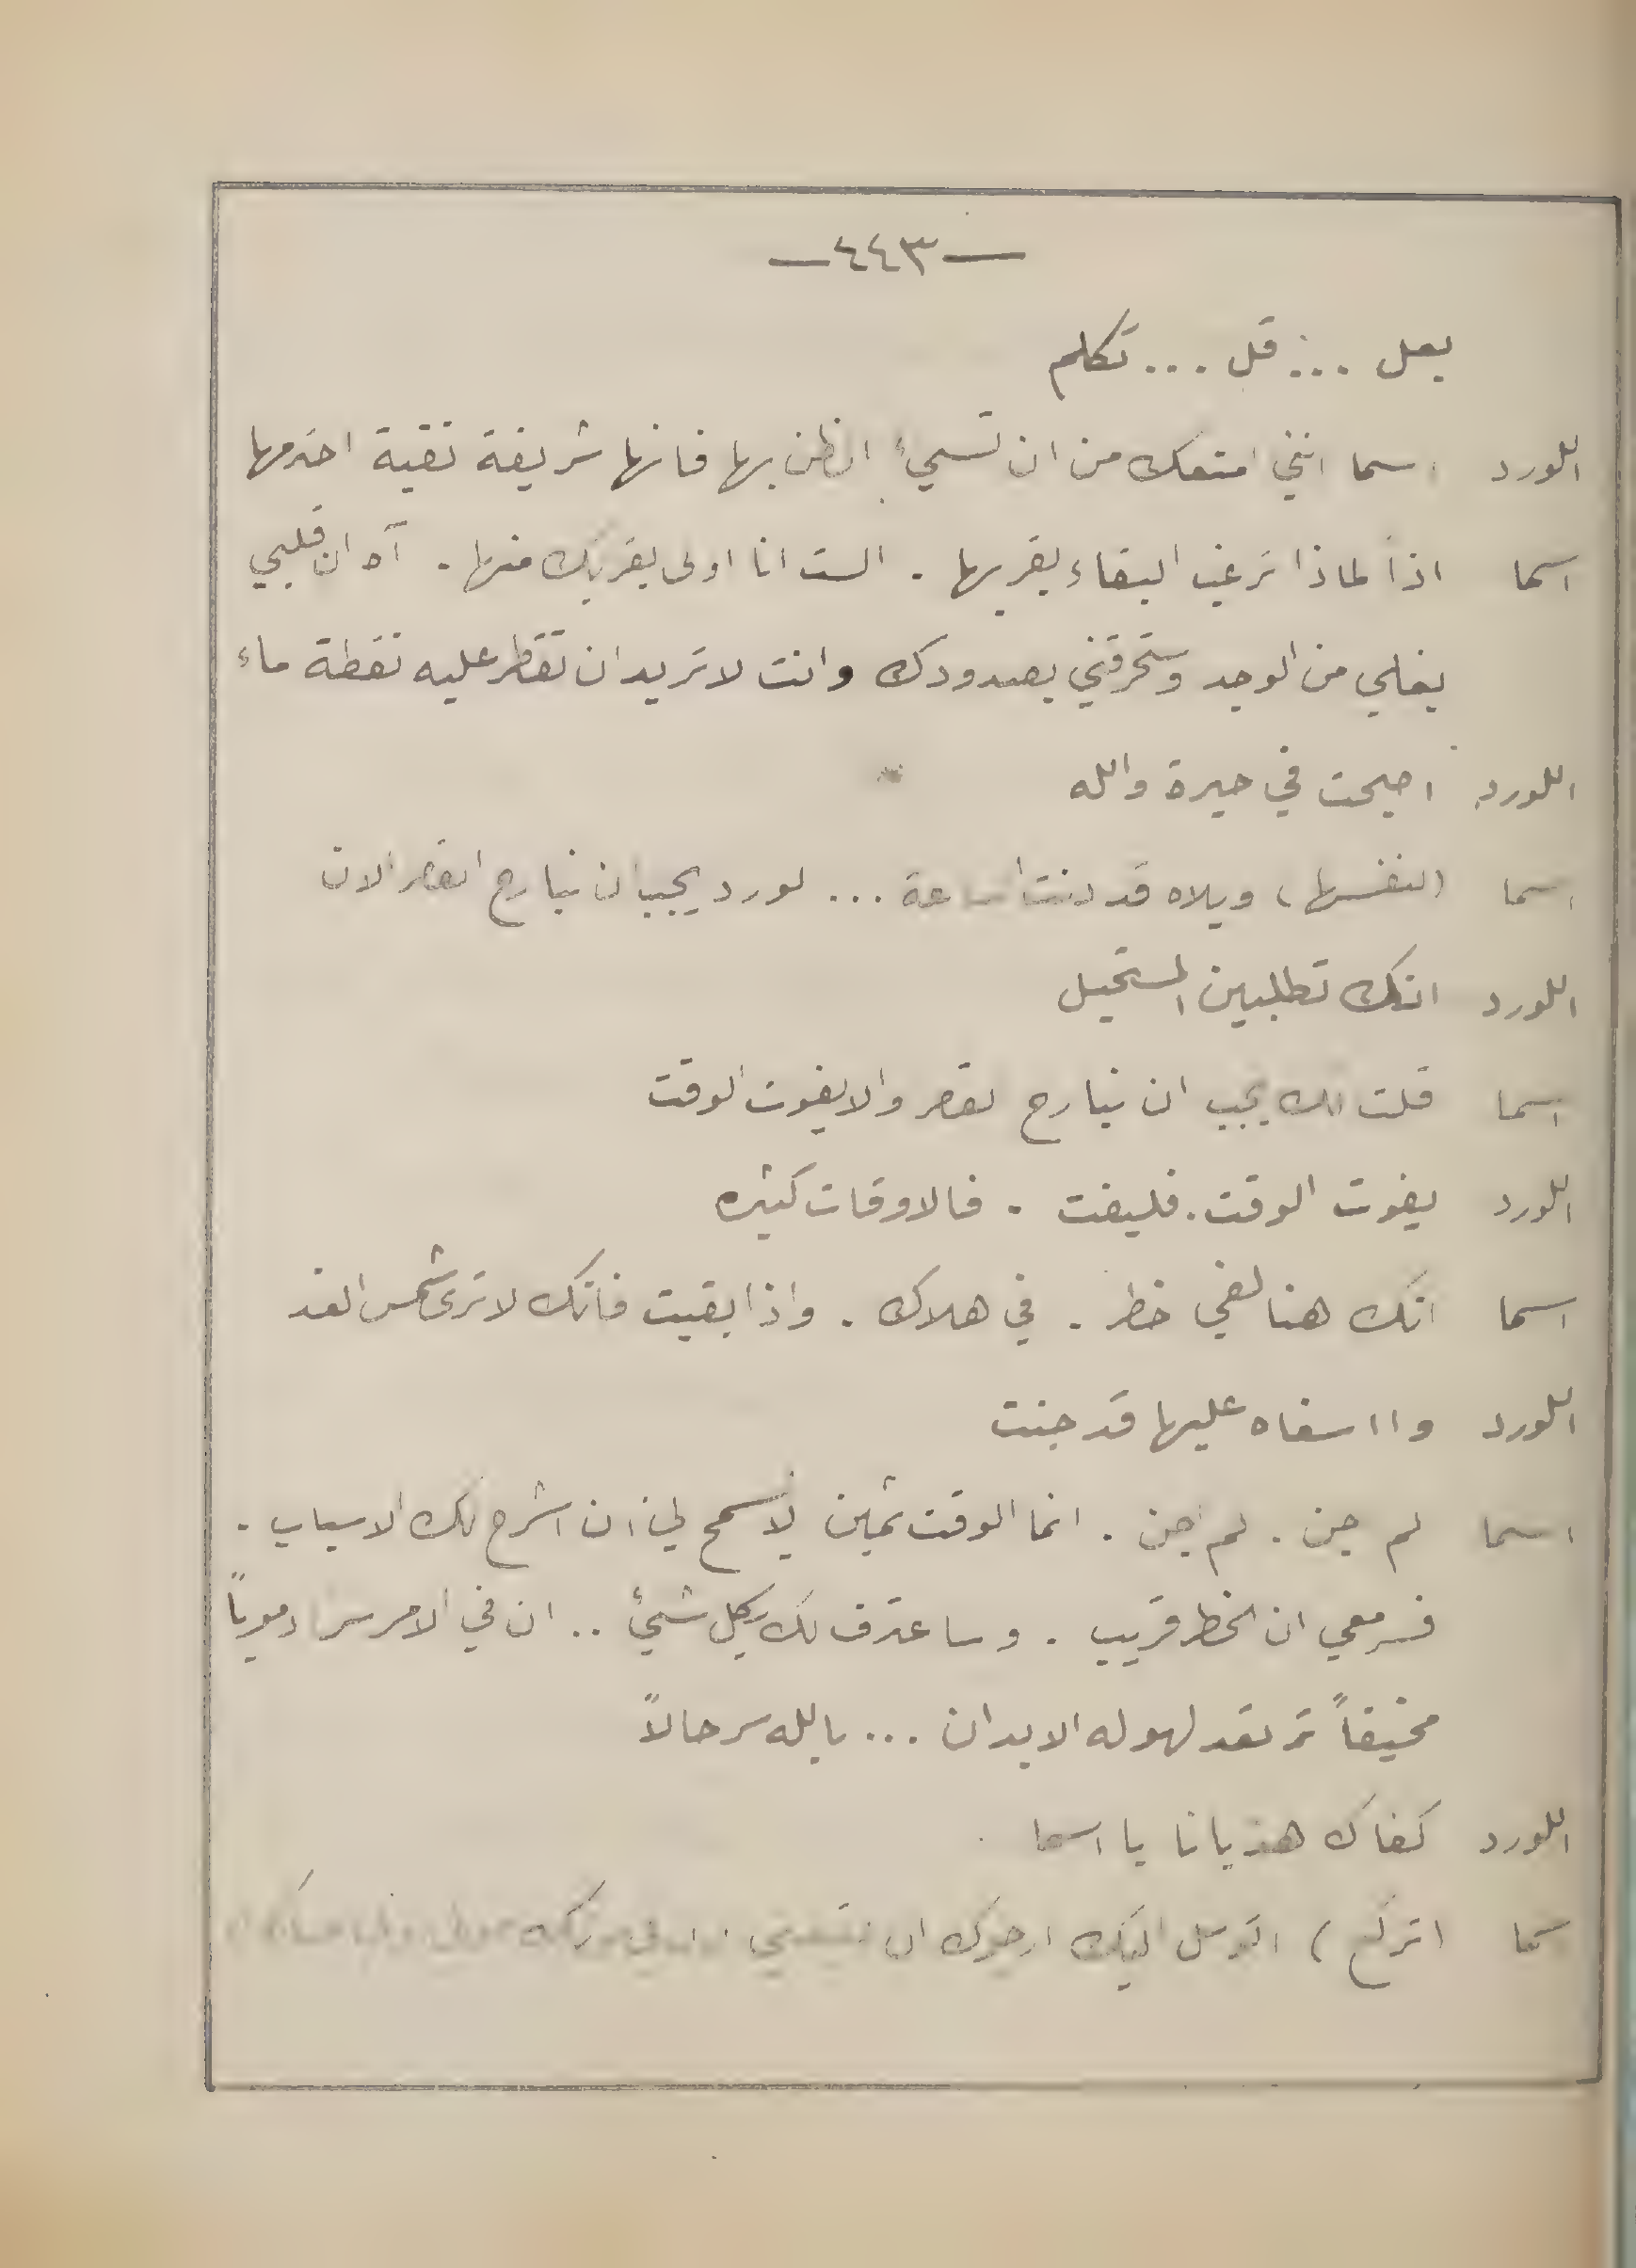 —٤٤٣—
بعل ... قل ... تكلم
اللورد اسما انني امنعك من ان تسيء الظن بها فانها شريفة نقية احترمها
اسما اذاً لماذا ترغب البقاء بقربها . الست انا اولى بقربك منها . آه ان قلبي
يغلي من الوجد وستحرقني بصدودك وانت لا تريد ان تقطر عليه نقطة ماء
اللورد اصبحت في حيرة والله
اسما (لنفسها) ويلاه قد دنت الساعة ... لورد يجب ان نبارح القصر الان
اللورد انك تطلبين المستحيل
اسما قلت لك يجب ان نبارح لقصر والا يفوت الوقت
اللورد يفوت الوقت . فليفت . فالاوقات كثيره
اسما انك هنا لفي خطر . في هلاك . واذا بقيت فانك لا ترى شمس الغد
اللورد وا اسفاه عليها قد جنت
اسما لم جن . لم اجن . انما الوقت ثمين لا يسمح لي ان اشرح لك الاسباب .
فسر معي ان الخطر قريب . وساعترف لك بكل شيئ .. ان في الامر سرا دموياً
مخيفاً ترتعد لهوله الابدان ... بالله سر حالاً
اللورد كفاك هذيانا يا اسما
اسما (تركع) اتوسل اليك ارجوك ان